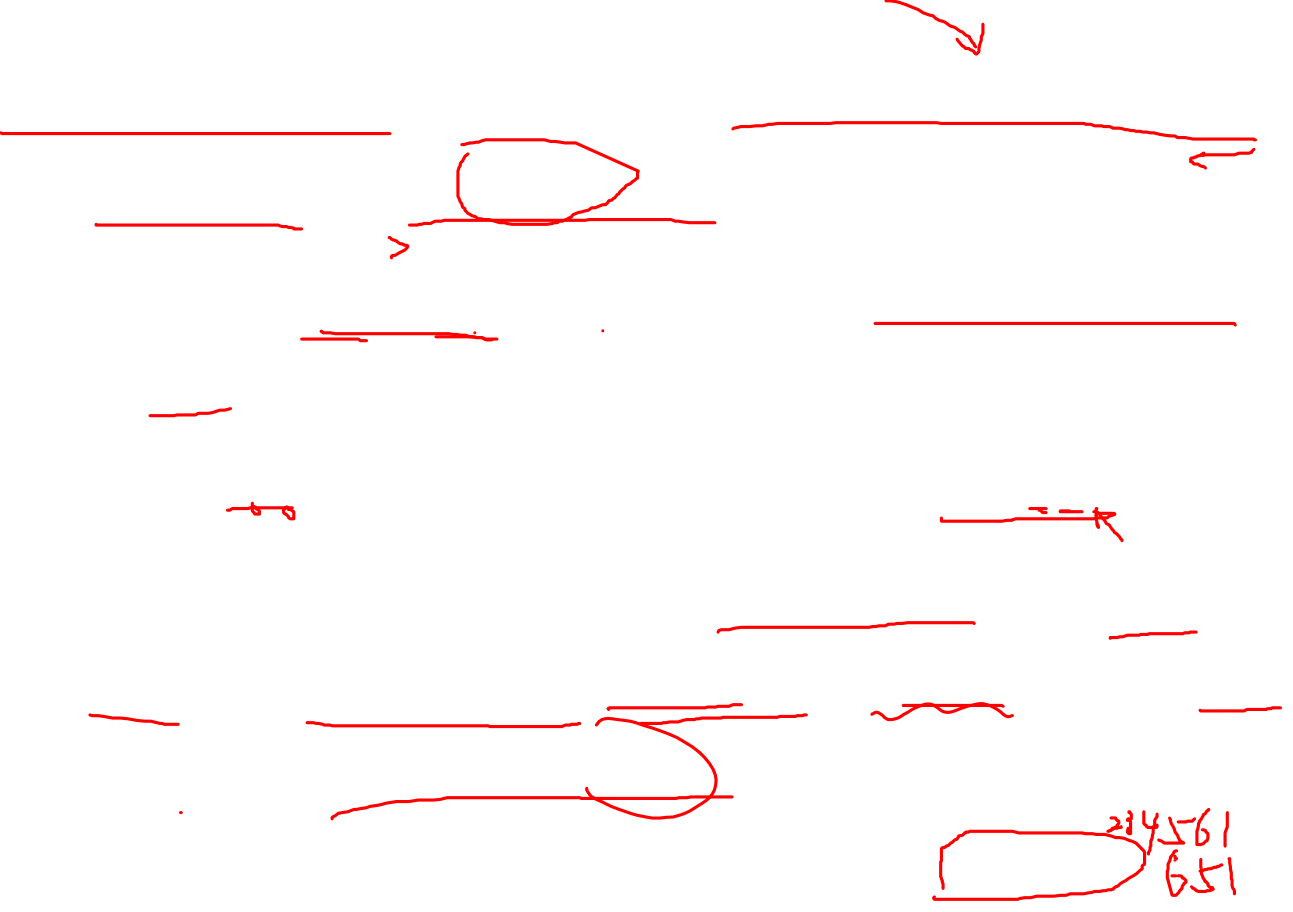 234561
651